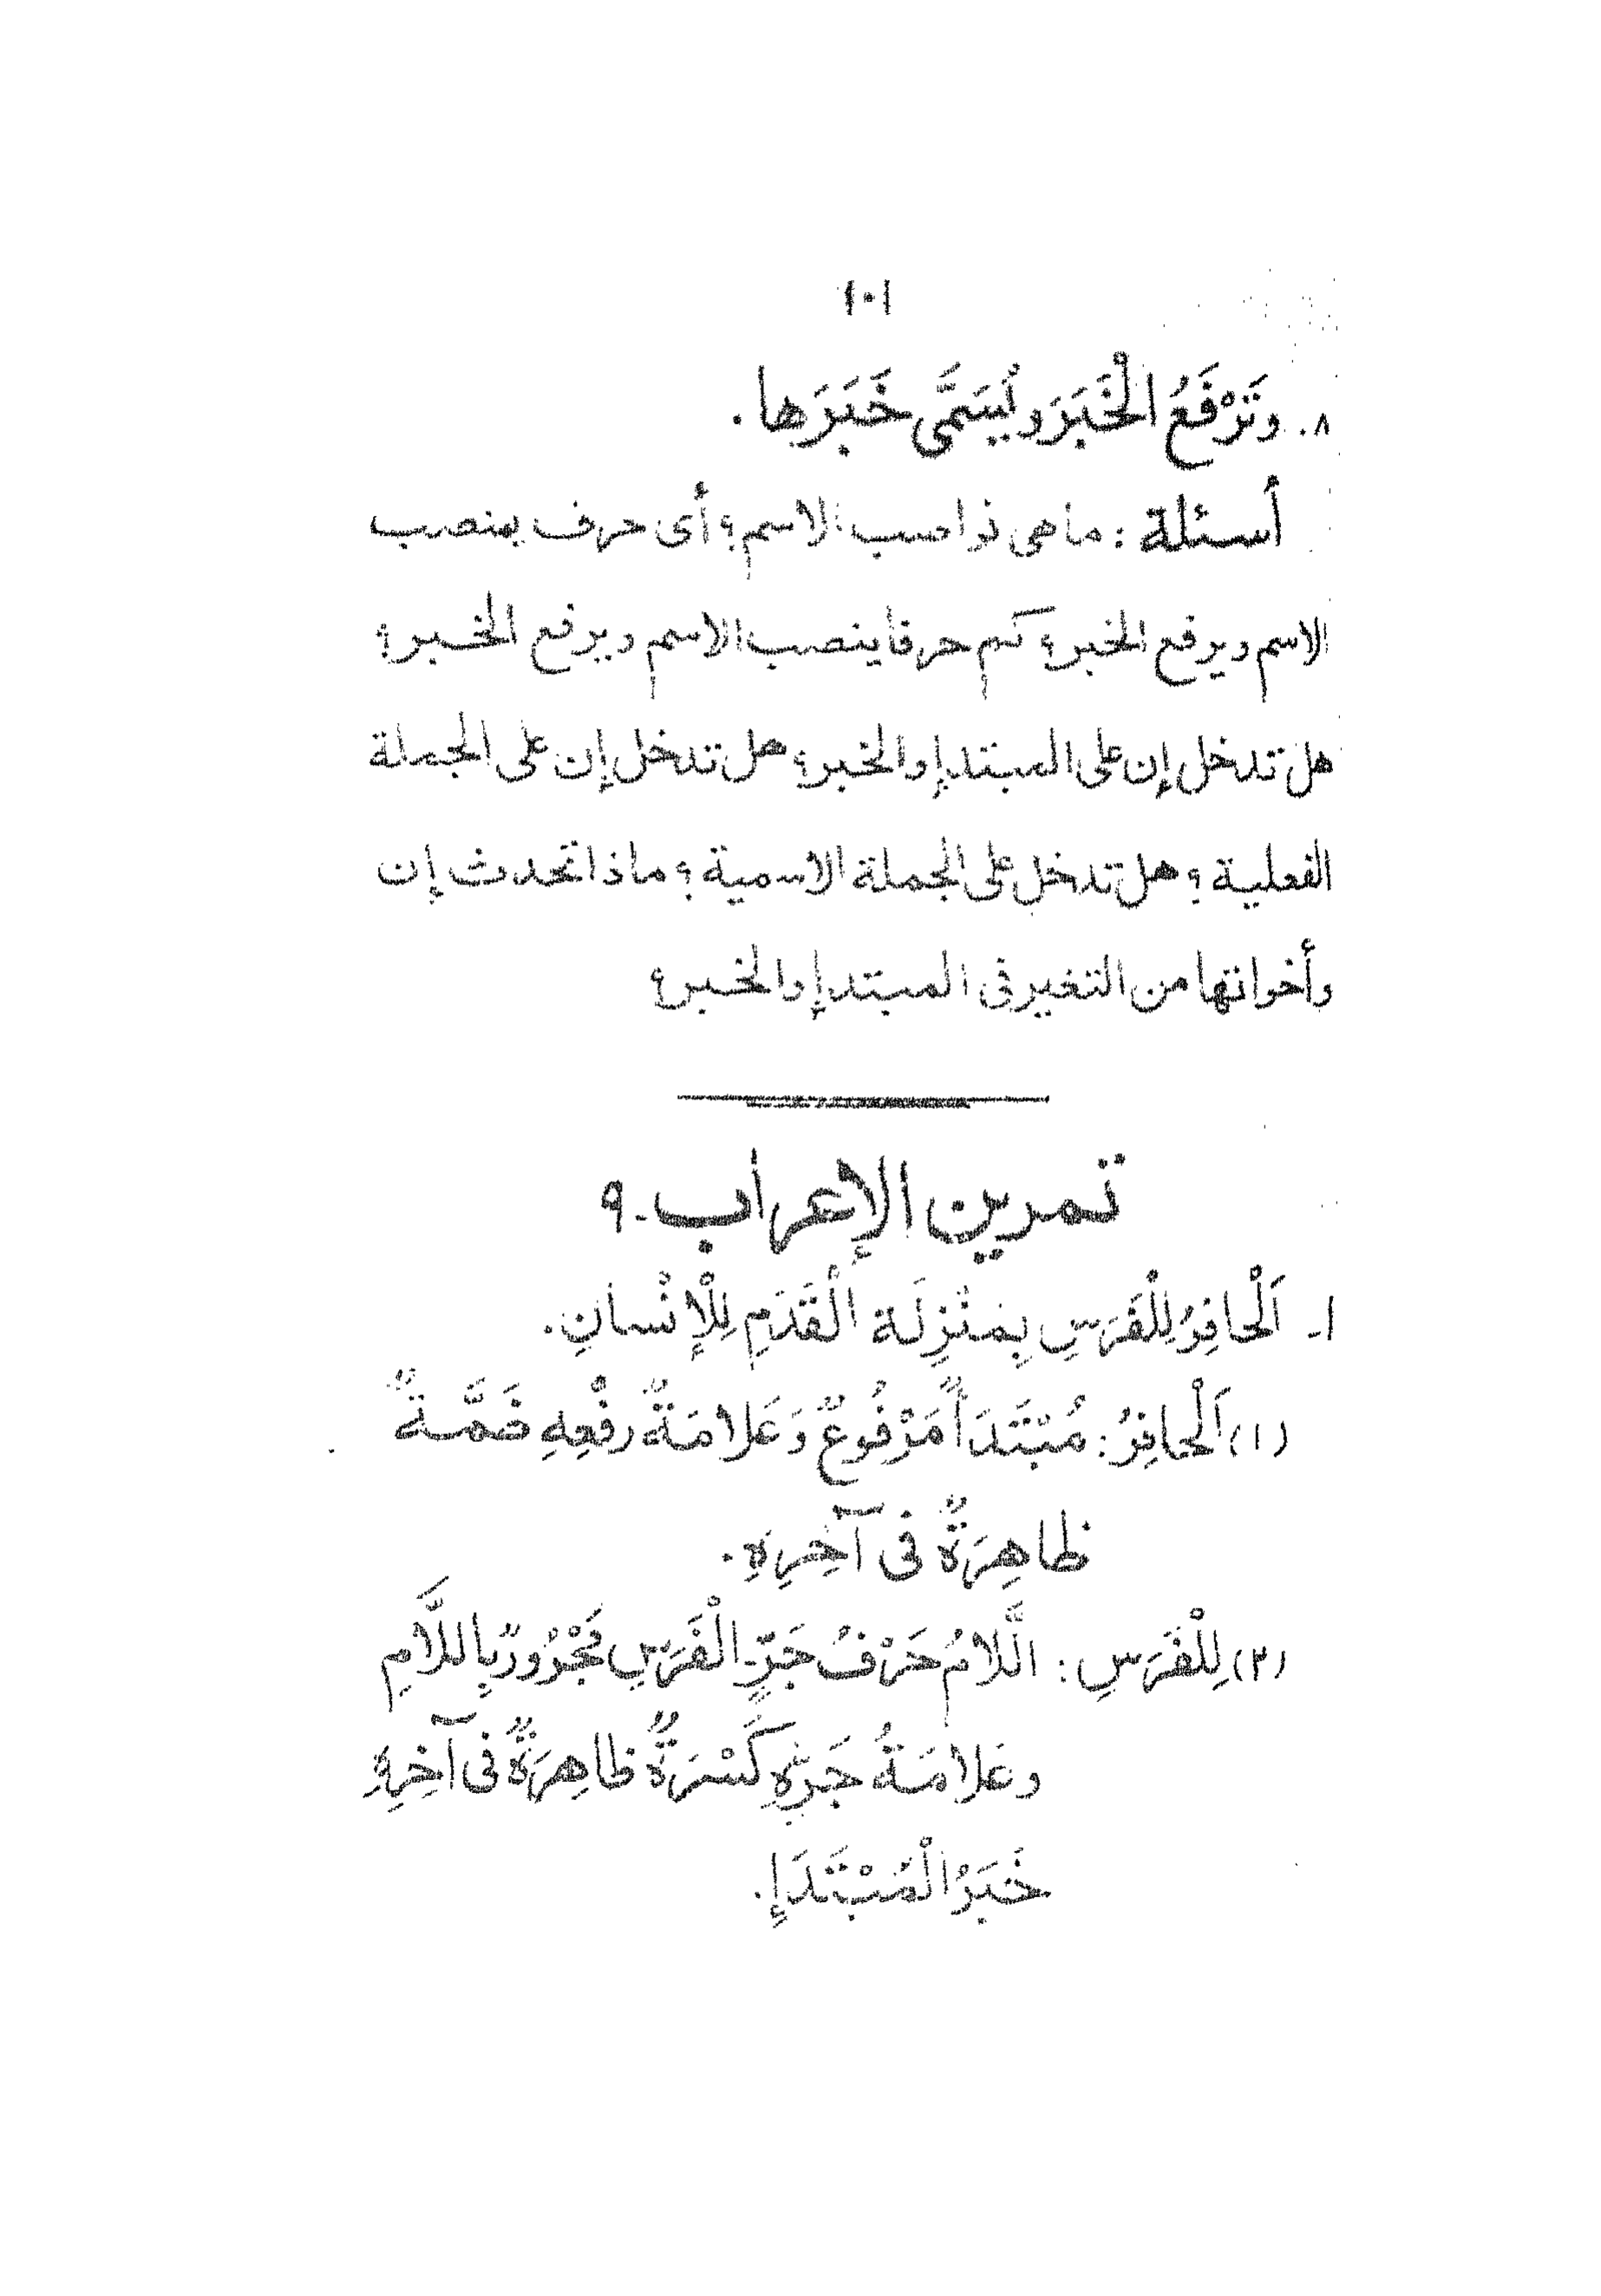 ١٠١
٨. وَتَرْفَعُ الْخَبَرَ وَيُسَمَّى خَبَرَها.
أسئلة : ماهى نواصب الاسم؟ أى حرف ينصب
الاسم ويرفع الخبر؟ كم حرفا ينصب الاسم ويرفع الخبر؟
هل تدخل إن على المبتدإ والخبر؟ هل تدخل إن على الجملة
الفعلية ؟ هل تدخل على الجملة الاسمية ؟ ماذا تحدث إن
وأخواتها من التغير فى المبتدإ والخبر؟
تمرين الإعراب ـ ٩
١ـ اَلْحافِرُ لِلْفَرَسِ بِمَنْزِلَة الْقَدَمِ لِلْإِنْسانِ.
(١) اَلْحافِرُ: مُبْتَدَأً مَرْفُوعٌ وَعَلامَةٌ رفْعِهِ ضَمَّةٌ
ظاهِرَةٌ فى آخِرِهِ.
(٢) لِلْفَرَسِ : اللَّامُ حَرْفُ جَرٍّ ـ الْفَرَسِ مَجْرُورٌ بِاللَّامِ
وعَلامَةُ جَرِّهِ كَسْرَةٌ ظاهِرَةٌ فى آخِرِهِ
خَبَرُ الْمُبْتَدَإِ.